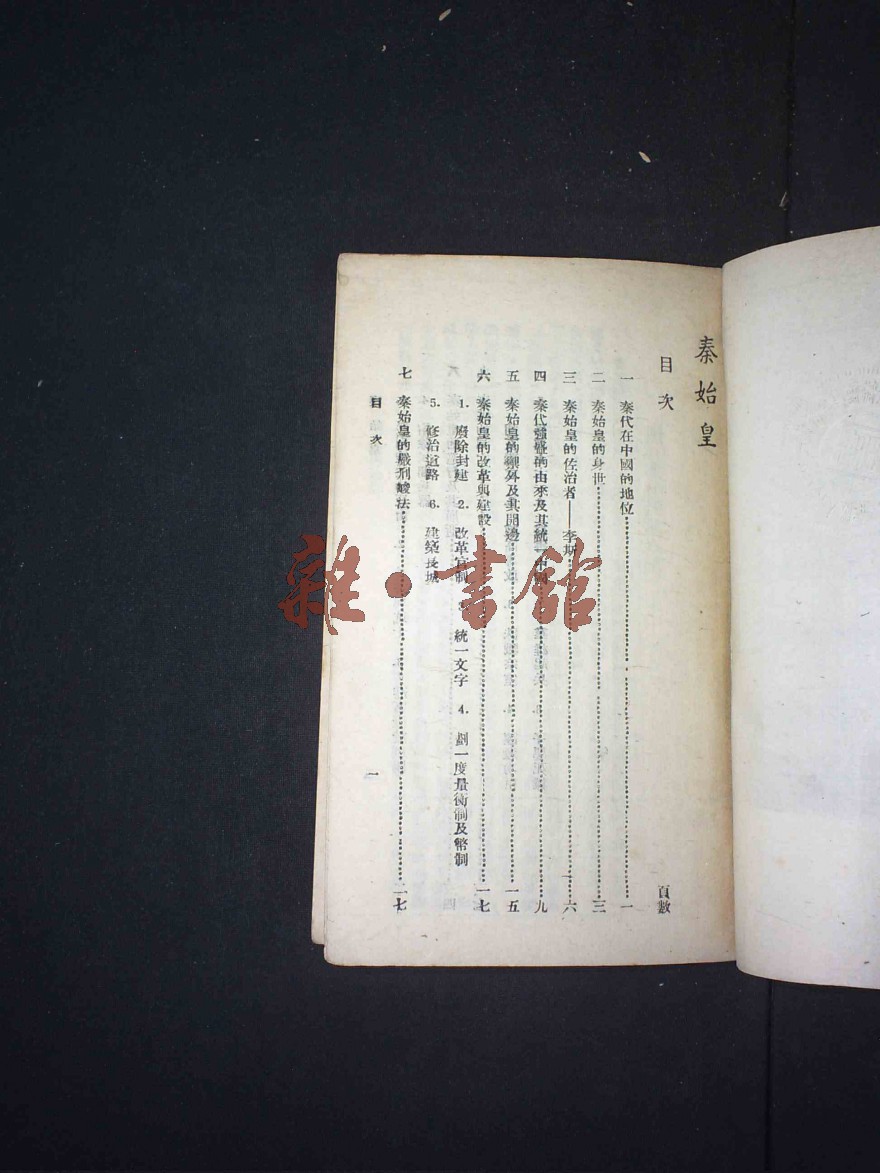 秦始皇
目次
頁數
一 秦代在中國的地位 一
二 秦始皇的身世 三
三 秦始皇的佐治者——李斯 六
四 秦代強盛的由來及其統一中國 九
五 秦始皇的攘外及其開邊 一五
六 秦始皇的改革與建設 一七
1. 廢除封建 2. 改革官制 3. 統一文字 4. 劃一度量衡制及幣制
5. 修治道路 6. 建築長城
七 秦始皇的嚴刑峻法 二七
目次
一
雜·書館